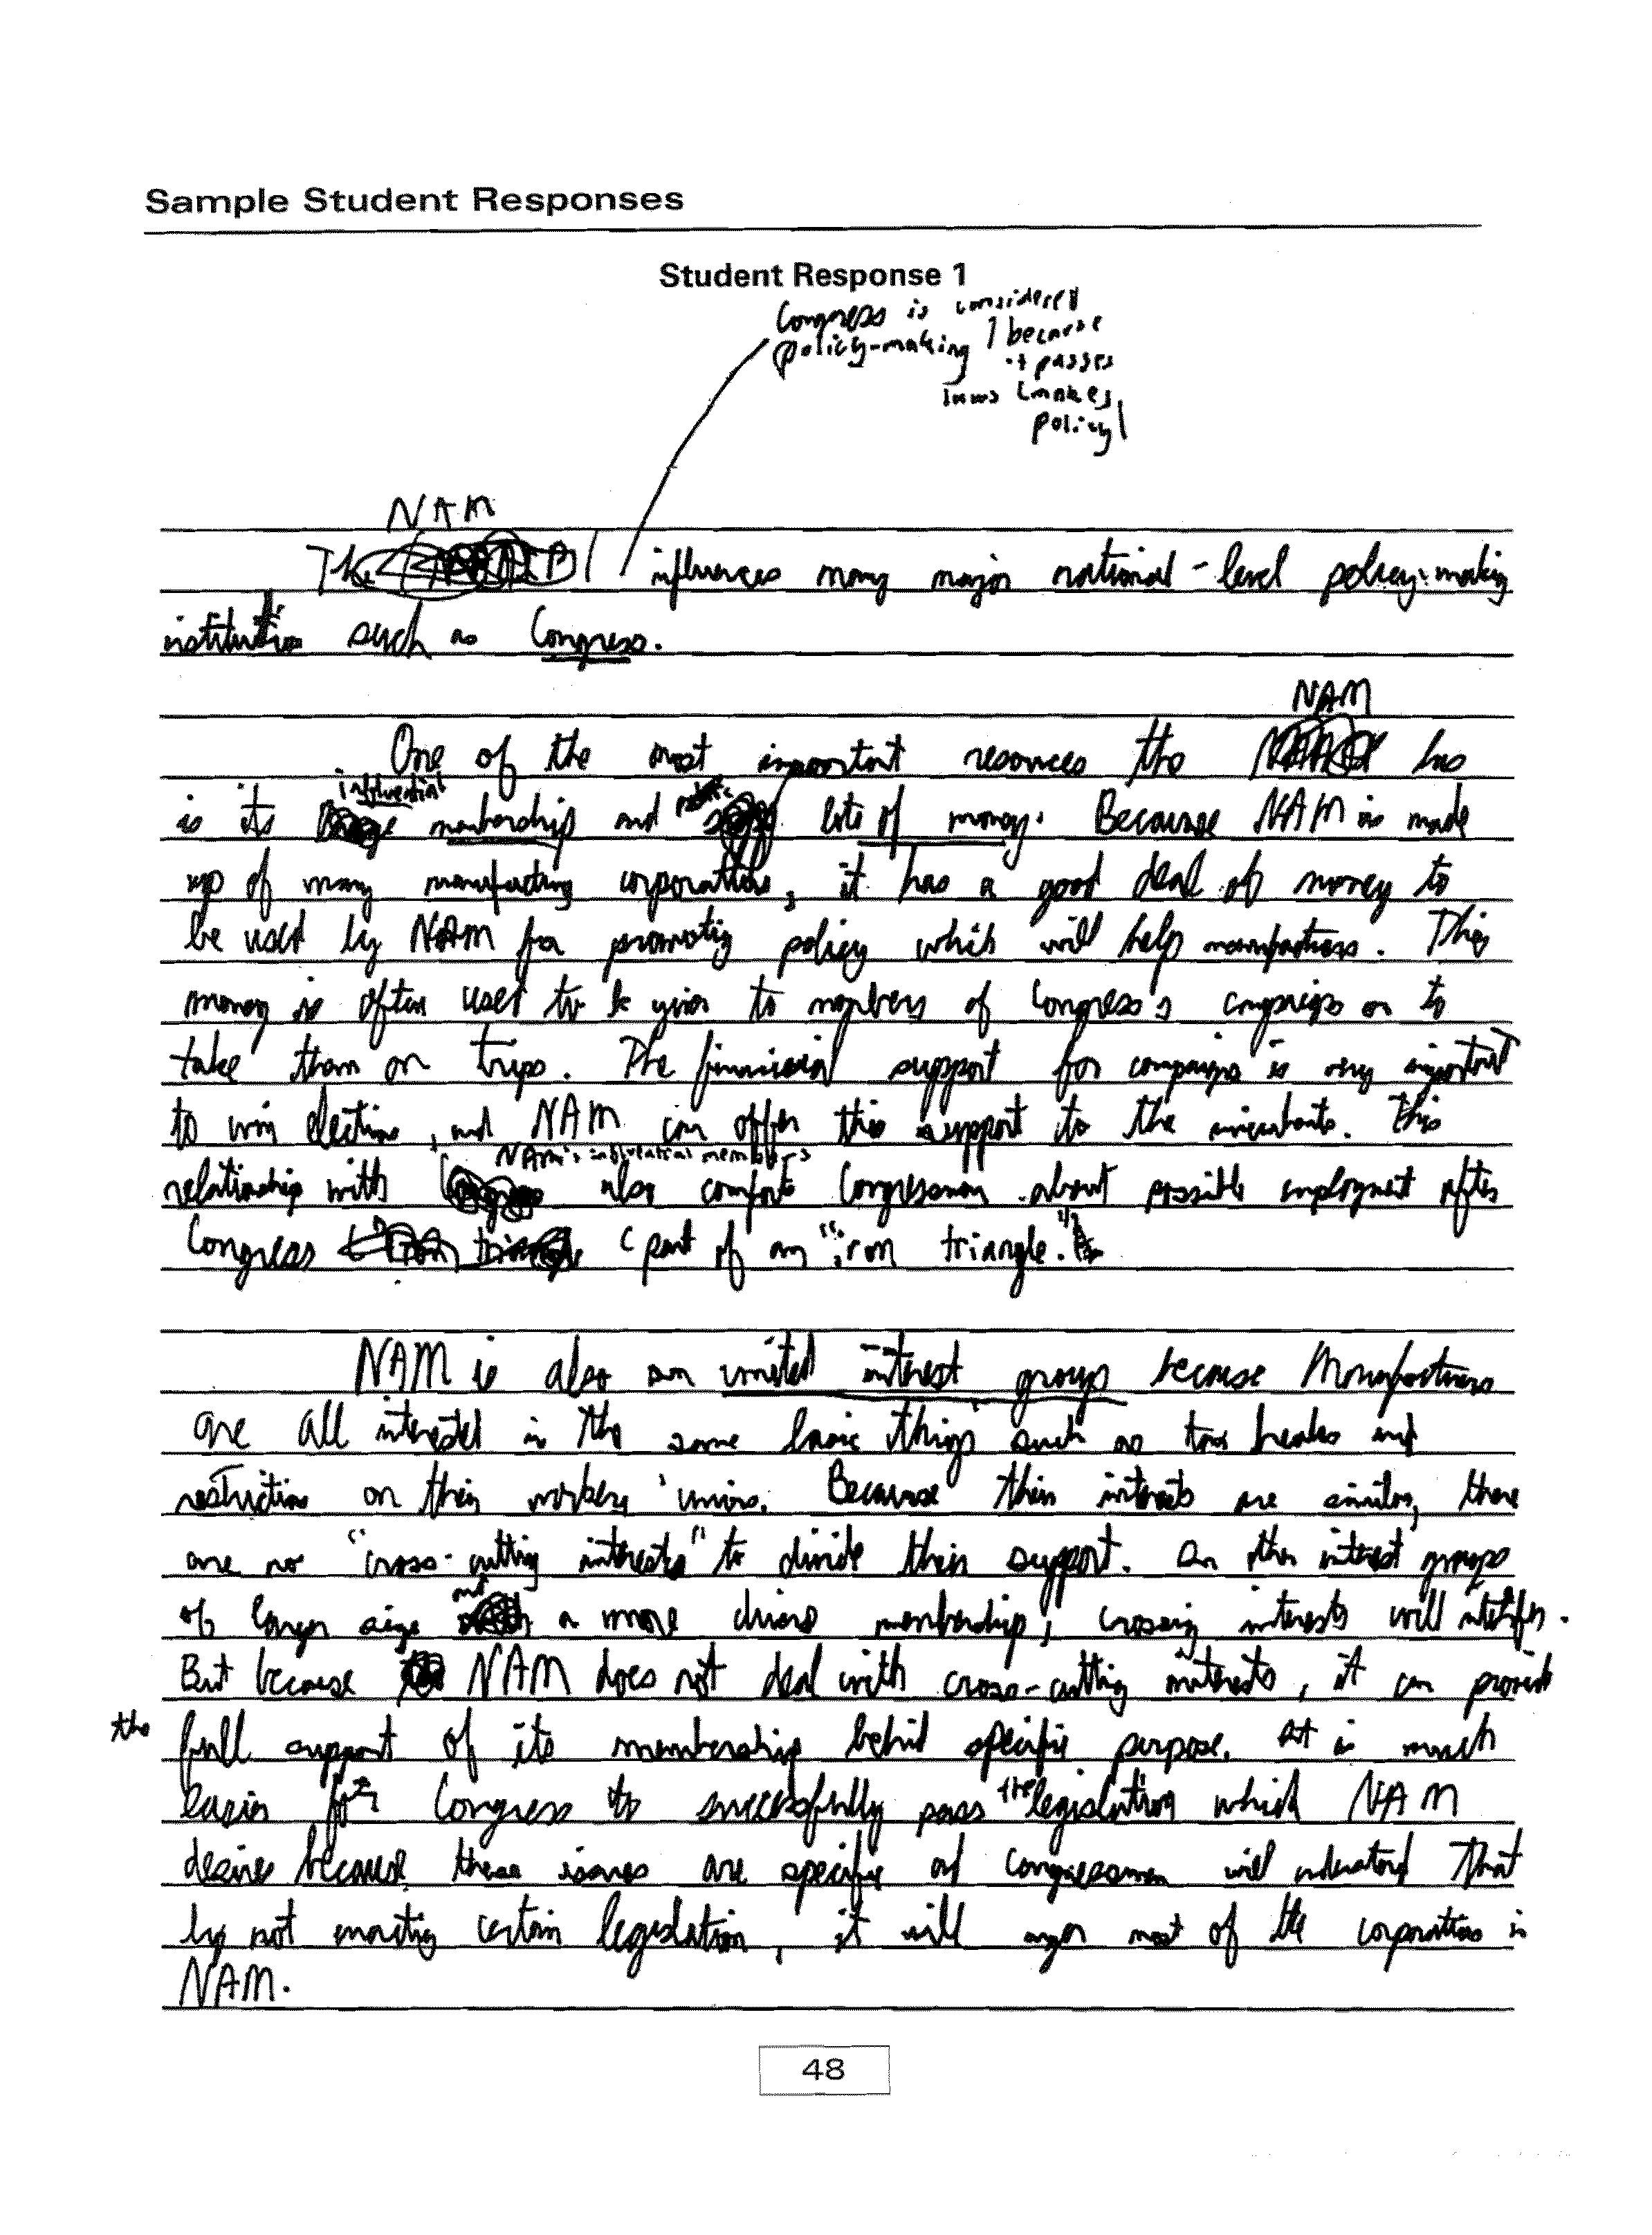 Sample Student Responses
Student Response 1
Congress is considered
policy-making because
it passes
laws (makes
policy)
NAM
The influences many major national-level policy-making
institutions such as Congress.
NAM
One of the most important resources the has
influential
is its membership and lots of money. Because NAM is made
up of many manufacturing corporations, it has a good deal of money to
be used by NAM for promoting policy which will help manufacturers. This
money is often used to be given to members of Congress's campaigns or to
take them on trips. The financial support for campaigns is very important
to win elections, and NAM can offer this support to the incumbents. This
NAM's influential members
relationship with also comforts Congressmen about possible employment after
Congress (part of an "iron triangle."
NAM is also an united interest groups because Manufacturers
are all interested in the same basic things such as tax breaks and
restrictions on their workers' unions. Because their interests are similar, there
are no "cross-cutting interests" to divide their support. In other interest groups
and
of larger size a more diverse membership, crossing interests will interfer.
But because NAM does not deal with cross-cutting interests, it can provide
the full support of its membership behind specific purpose. It is much
easier for Congress to successfully pass the legislation which NAM
desires because these issues are specific and Congressmen will understand that
by not enacting certain legislation, it will anger most of the corporations in
NAM.
48